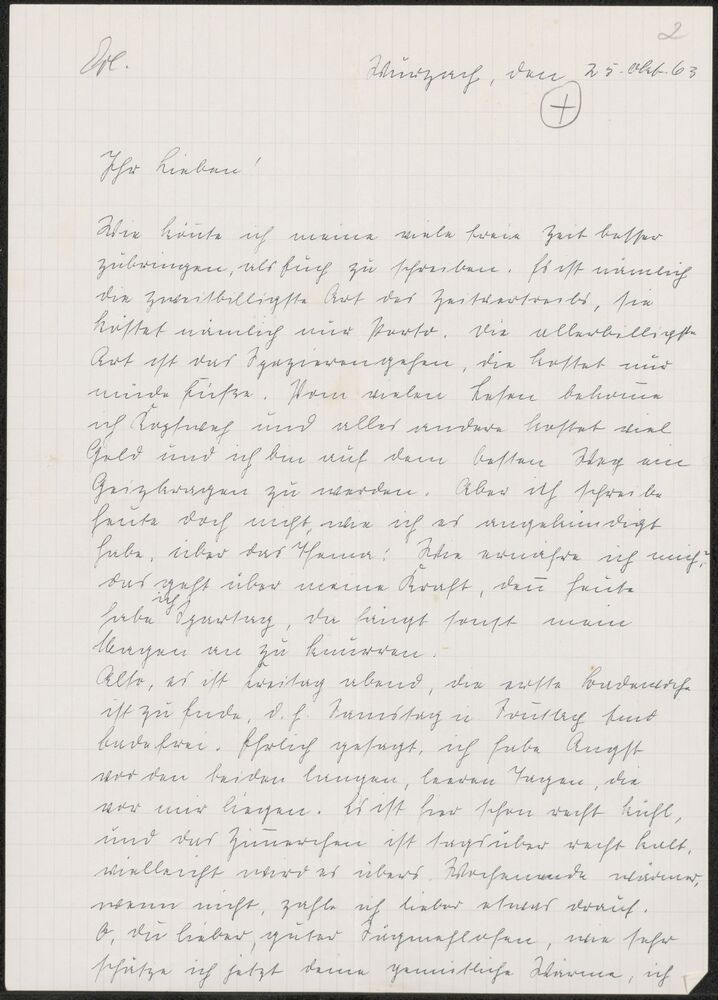 2
Wurzach, den 25. Okt. 63
Ihr Lieben!
Wie könnte ich meine viele freie Zeit besser
zubringen, als Euch zu schreiben. Es ist nämlich
die zweitbilligste Art des Zeitvertreibs, sie
kostet nämlich nur Porto. Die allerbilligste
Art ist das Spazierengehen, die kostet nur
müde Füße. Vom vielen Lesen bekomme
ich Kopfweh und alles andere kostet viel
Geld und ich bin auf dem besten Weg ein
Geizkragen zu werden. Aber ich schreibe
heute doch nicht, wie ich es angekündigt
habe, über das Thema: Wie ernähre ich mich?
das geht über meine Kraft, denn heute
habe ich Spartag, da fängt sonst mein
Magen an zu knurren.
Also, es ist Freitag abend, die erste Badewoche
ist zu Ende, d. h. Samstag u. Sonntag sind
badefrei. Ehrlich gesagt, ich habe Angst
vor den beiden langen, leeren Tagen, die
vor mir liegen. Es ist hier schon recht kühl,
und das Zimmerchen ist tagsüber recht kalt,
vielleicht wird es übers Wochenende wärmer,
wenn nicht, zahle ich lieber etwas drauf.
O, du lieber, guter Sägmehlofen, wie sehr
schätze ich jetzt deine gemütliche Wärme, ich